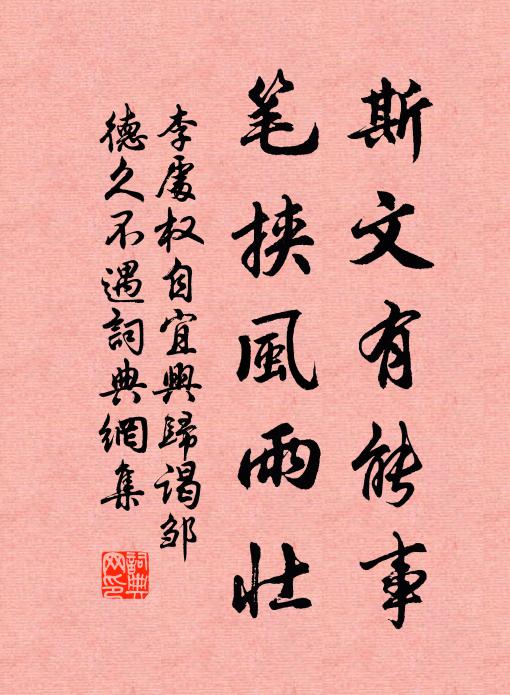 斯文有能事
笔挟風雨壮
李處权自宜興歸谒邹
德久不遇詞典網集
詞典網印